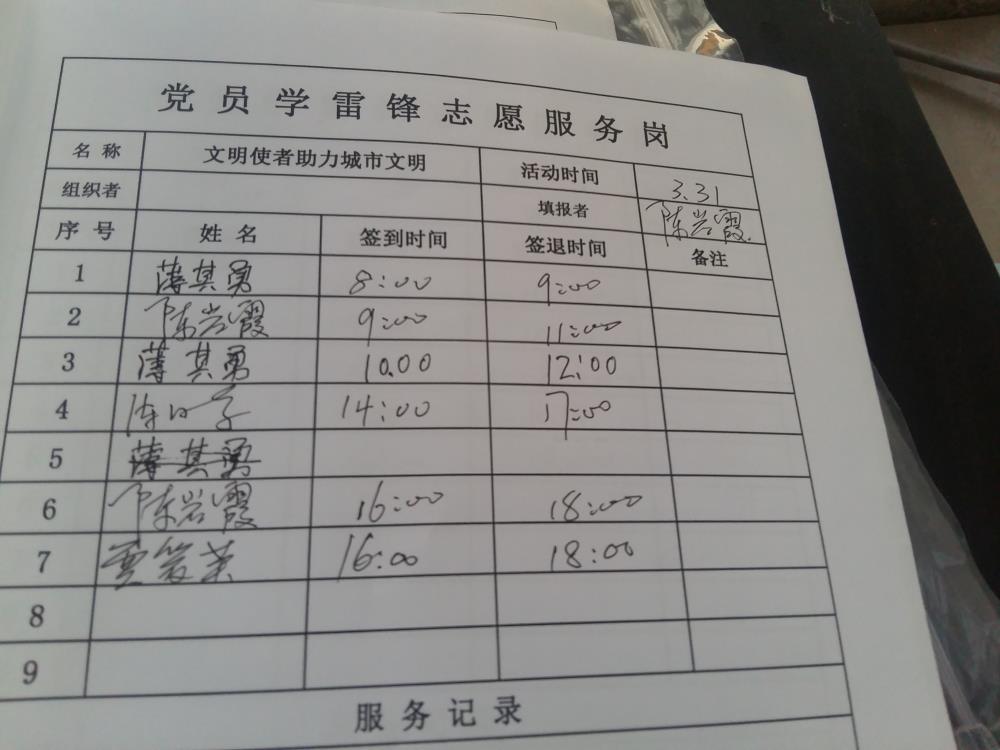 党员学雷锋志愿服务岗
名称 文明使者助力城市文明 活动时间 3.31
组织者 填报者 陈岩霞
序号 姓名 签到时间 签退时间 备注
1 薄其勇 8:00 9:00
2 陈岩霞 9:00 11:00
3 薄其勇 10.00 12:00
4 14:00 17:00
5 薄其勇
6 陈岩霞 16:00 18:00
7 16:00 18:00
8
9
服务记录